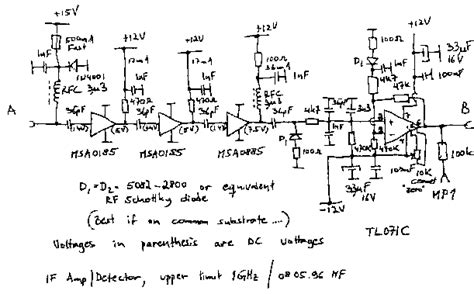 +15V
500mA
Fast
1nF
1N4001
RFC
3u3
+12V
17mA
1nF
470Ω
+12V
17mA
1nF
470Ω
+12V
100Ω
36mA
1nF
RFC
3u3
+12V
100Ω
D2
1nF
4k7
47k
33µF
16V
100nF
A
36pF
36pF
36pF
36pF
(5V)
(5V)
(7.5V)
MSA0185
MSA0185
MSA0885
D1
100Ω
4k7
36pF
1nF
3u3
470k
470k
33µF
16V
-12V
100nF
10k
"zero"
MP1
100k
B
TL071C
D1=D2= 5082-2800 or equivalent
RF Schottky diode
(Best if on common substrate....)
Voltages in parenthesis are DC voltages
IF Amp/Detector, upper limit 1GHz / 080596 MF